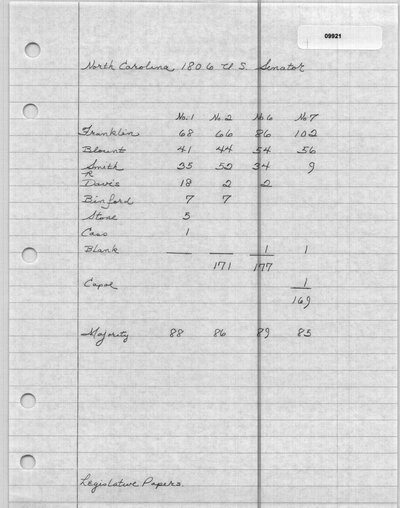 09921
North Carolina, 1806 U.S. Senator
No.1 No.2 No.6 No.7
Franklin 68 66 86 102
Blount 41 44 54 56
Smith 35 52 34 9
R
Davis 18 2 2
Binford 7 7
Stone 5
Cass 1
Blank 1 1
171 177
Capoe 1
169
Majority 88 86 89 85
Legislative Papers.